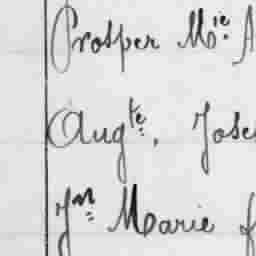 Prosper Mie. A
Augte., Jose
Jn Marie